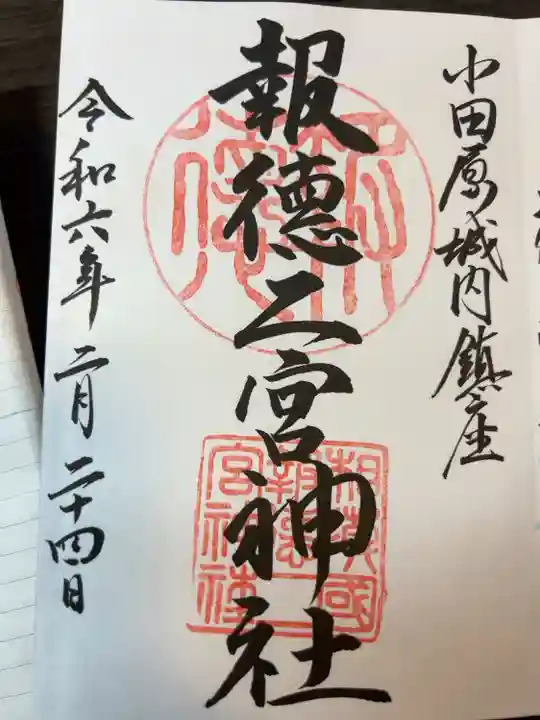 小田原城内鎮座
報徳二宮神社
令和六年二月二十四日
報徳
相模國
報徳二
宮神社